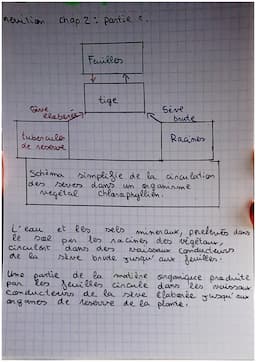 révision chap. 2 : partie c.
Feuilles
tige
Sève
élaborée
Sève
brute
tubercules
de réserve
Racines
Schéma simplifié de la circulation
des sèves dans un organisme
végétal chlorophyllien.
L'eau et les sels minéraux, prélevés dans
le sol par les racines des végétaux,
circulent dans des vaisseaux conducteurs
de la sève brute jusqu'aux feuilles.
Une partie de la matière organique produite
par les feuilles circule dans les vaisseaux
conducteurs de la sève élaborée jusqu'aux
organes de réserve de la plante.